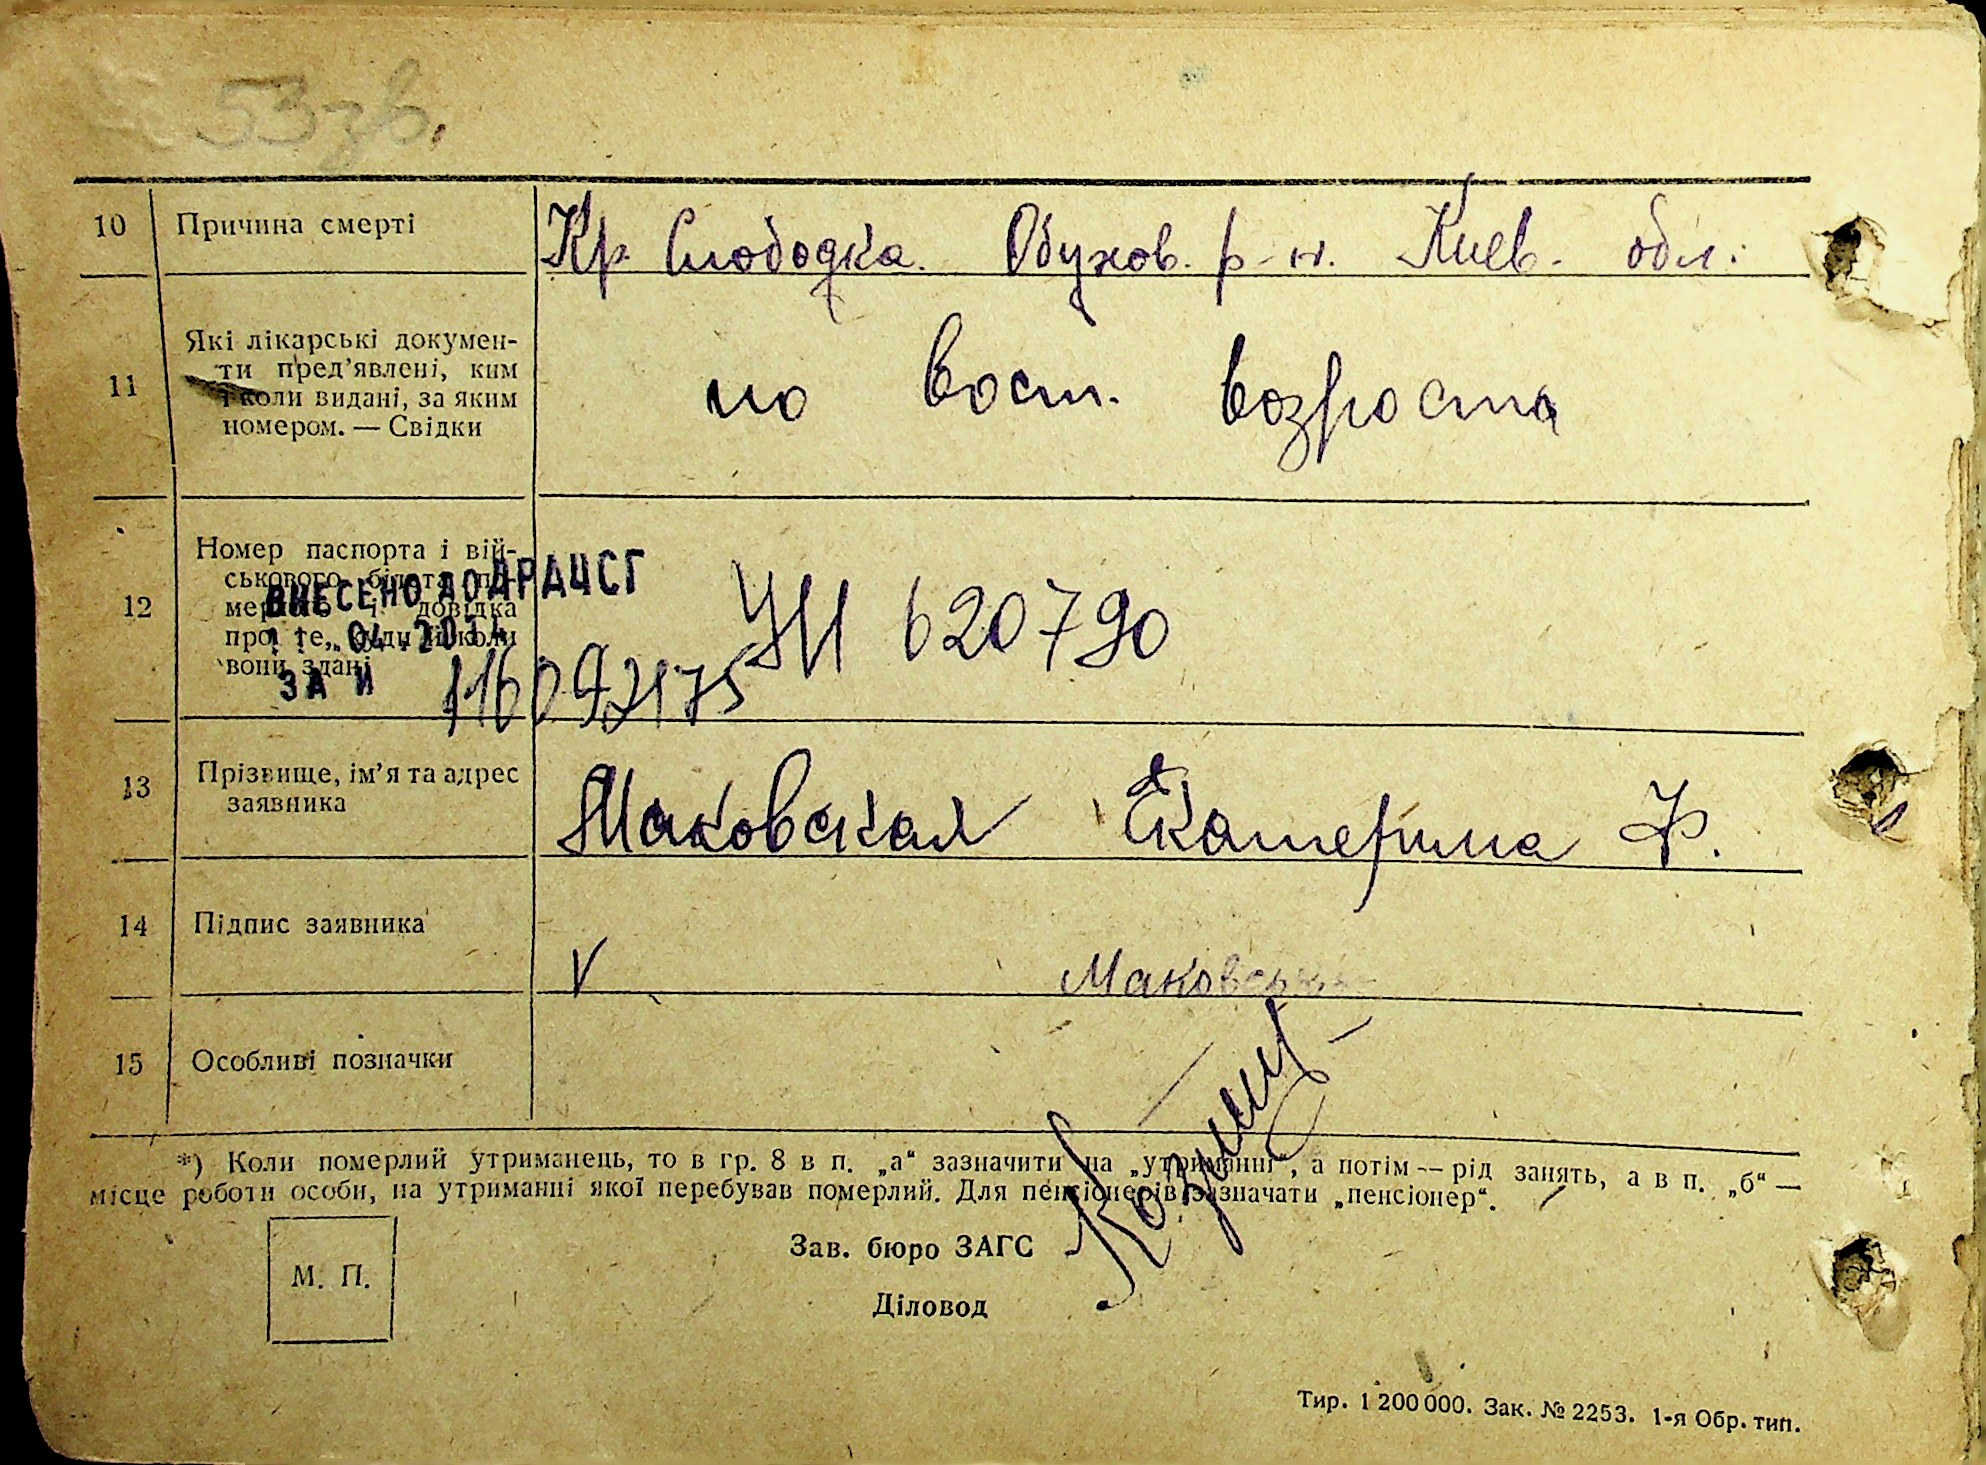 53зв.
10 Причина смерті Кр. Слободка. Обухов. р-н. Киев. обл.
11 Які лікарські докумен-
ти пред'явлені, ким
і коли видані, за яким
номером. — Свідки
по вост. возроста
12 Номер паспорта і вій-
ськового білета по-
мерлого і довідка
про те, куди й коли
вони здані
ВНЕСЕНО ДО ДРАЦСГ
04 201
ЗА И 116092175
УН 620790
13 Прізвище, ім'я та адрес
заявника
Маковская Екатерина Ф.
14 Підпис заявника
V Маковська
15 Особливі позначки
*) Коли померлий утриманець, то в гр. 8 в п. „а“ зазначити на „утриманні“, а потім — рід занять, а в п. „б“ —
місце роботи особи, на утриманні якої перебував померлий. Для пенсіонерів зазначати „пенсіонер“.
М. П.
Зав. бюро ЗАГС
Діловод
Тир. 1 200 000. Зак. № 2253. 1-я Обр. тип.